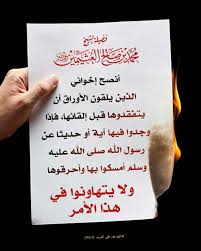 فضيلة الشيخ
محمد بن صالح العثيمين
أنصح إخواني
الذين يلقون الأوراق أن
يتفقدوها قبل إلقائها، فإذا
وجدوا فيها آية أو حديثا عن
رسول الله صلى الله عليه
وسلم أمسكوا بها وأحرقوها
ولا يتهاونوا في
هذا الأمر